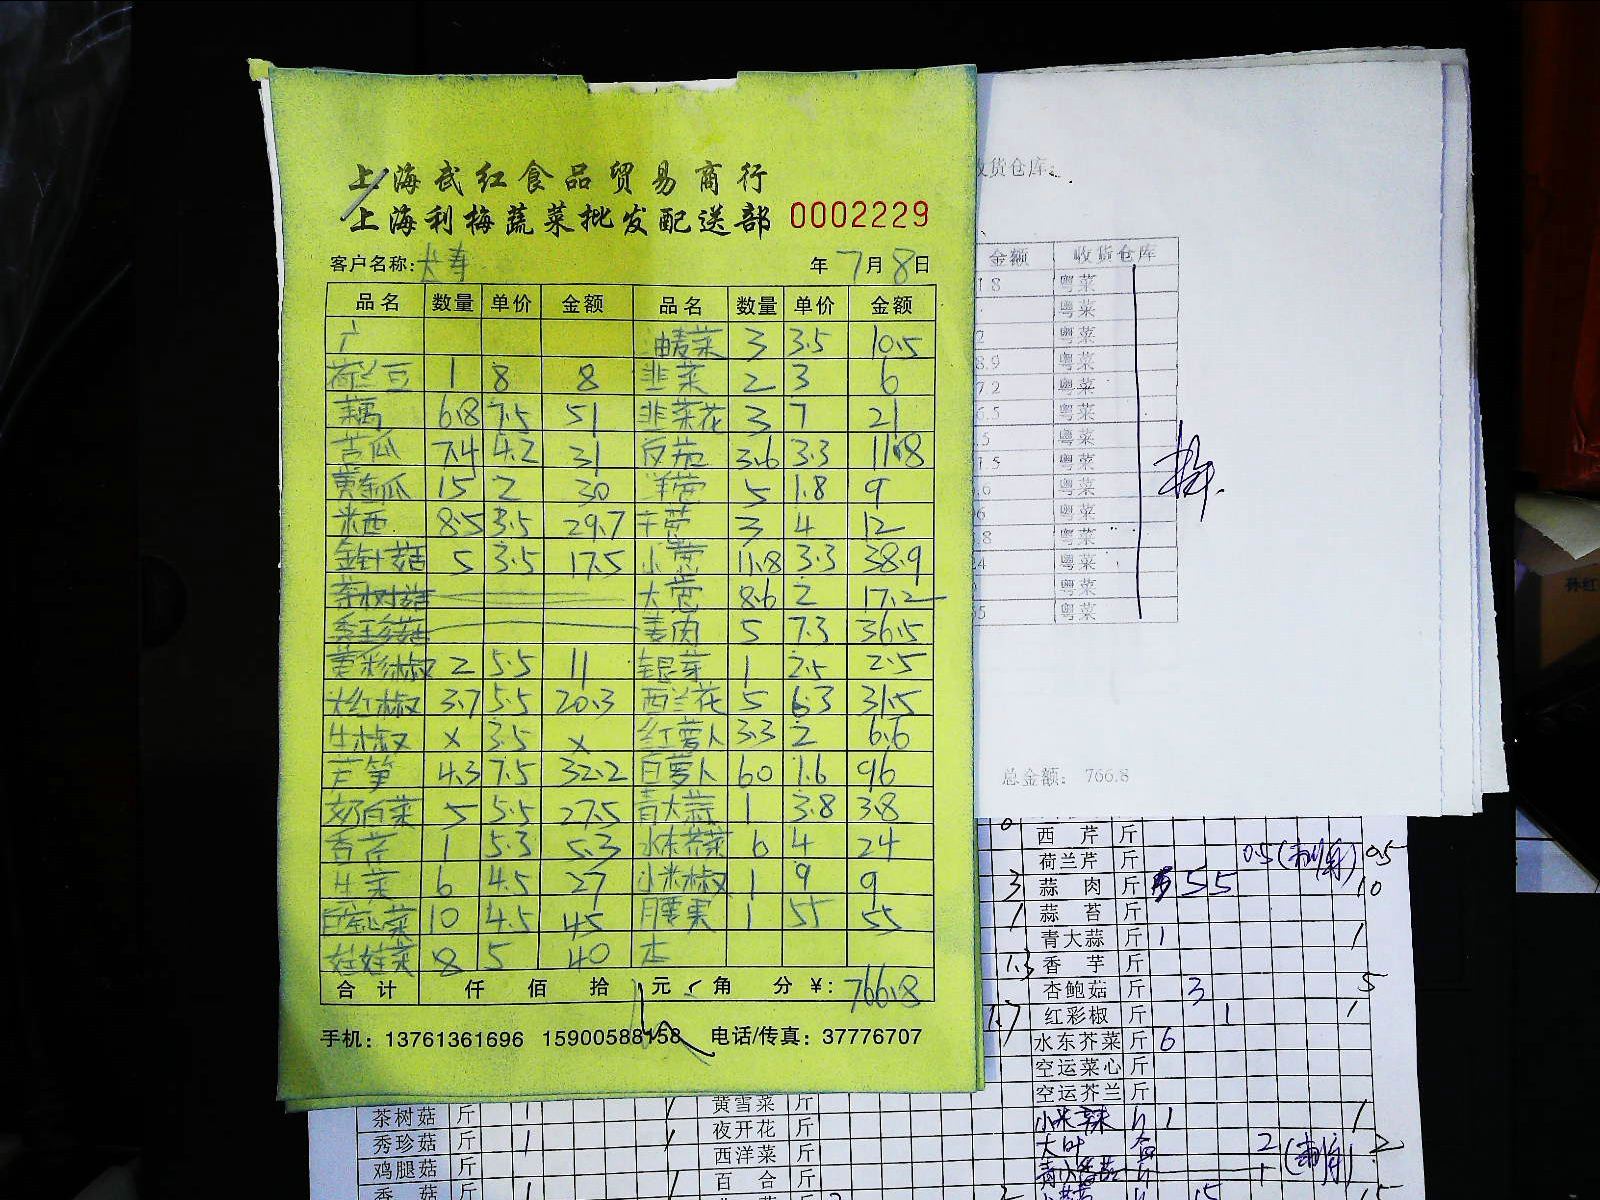 上海武红食品贸易商行
上海利梅蔬菜批发配送部 0002229
客户名称: 长寿 年 7 月 8 日
品名 数量 单价 金额 品名 数量 单价 金额
油麦菜 3 3.5 10.5
荷兰豆 1 8 8 韭菜 2 3 6
藕 6.8 7.5 51 韭菜花 3 7 21
苦瓜 7.4 4.2 31 3.6 3.3 11.8
黄金瓜 15 2 30 5 1.8 9
米西 8.5 3.5 29.7 3 4 12
金针菇 5 3.5 17.5 11.8 3.3 38.9
茶树菇 8.6 2 17.2
秀珍菇 姜肉 5 7.3 36.5
黄彩椒 2 5.5 11 银芽 1 2.5 2.5
大红椒 3.7 5.5 20.3 西兰花 5 6.3 31.5
牛椒 x 3.5 x 红萝卜 3.3 2 6.6
芦笋 4.3 7.5 32.2 白萝卜 60 1.6 96
奶白菜 5 5.5 27.5 青大蒜 1 3.8 3.8
香芹 1 5.3 5.3 水东芥菜 6 4 24
生菜 6 4.5 27 小米椒 1 9 9
10 4.5 45 腰果 1 55 55
娃娃菜 8 5 40 本
合计 仟 佰 拾 元 角 分 ¥: 766.8
手机: 13761361696 15900588158 电话/传真: 37776707
货仓库:
金额 收货仓库
18 粤菜
粤菜
2 粤菜
8.9 粤菜
7.2 粤菜
6.5 粤菜
.5 粤菜
1.5 粤菜
.6 粤菜
96 粤菜
.8 粤菜
24 粤菜
粤菜
55 粤菜
总金额: 766.8
0 西芹 斤
荷兰芹 斤 0.5 0.5
3 蒜肉 斤 5 5 10
1 蒜苔 斤
青大蒜 斤 1 1
1.3 香芋 斤
杏鲍菇 斤 3 5
1.7 红彩椒 斤 1 1
水东芥菜 斤 6
空运菜心 斤
空运芥兰 斤
小米辣 1 1
大叶 2 2
茶树菇 斤 1 1 黄雪菜 斤
秀珍菇 斤 1 1 夜开花 斤
鸡腿菇 斤 西洋菜 斤
香菇 斤 1 百合 斤
15